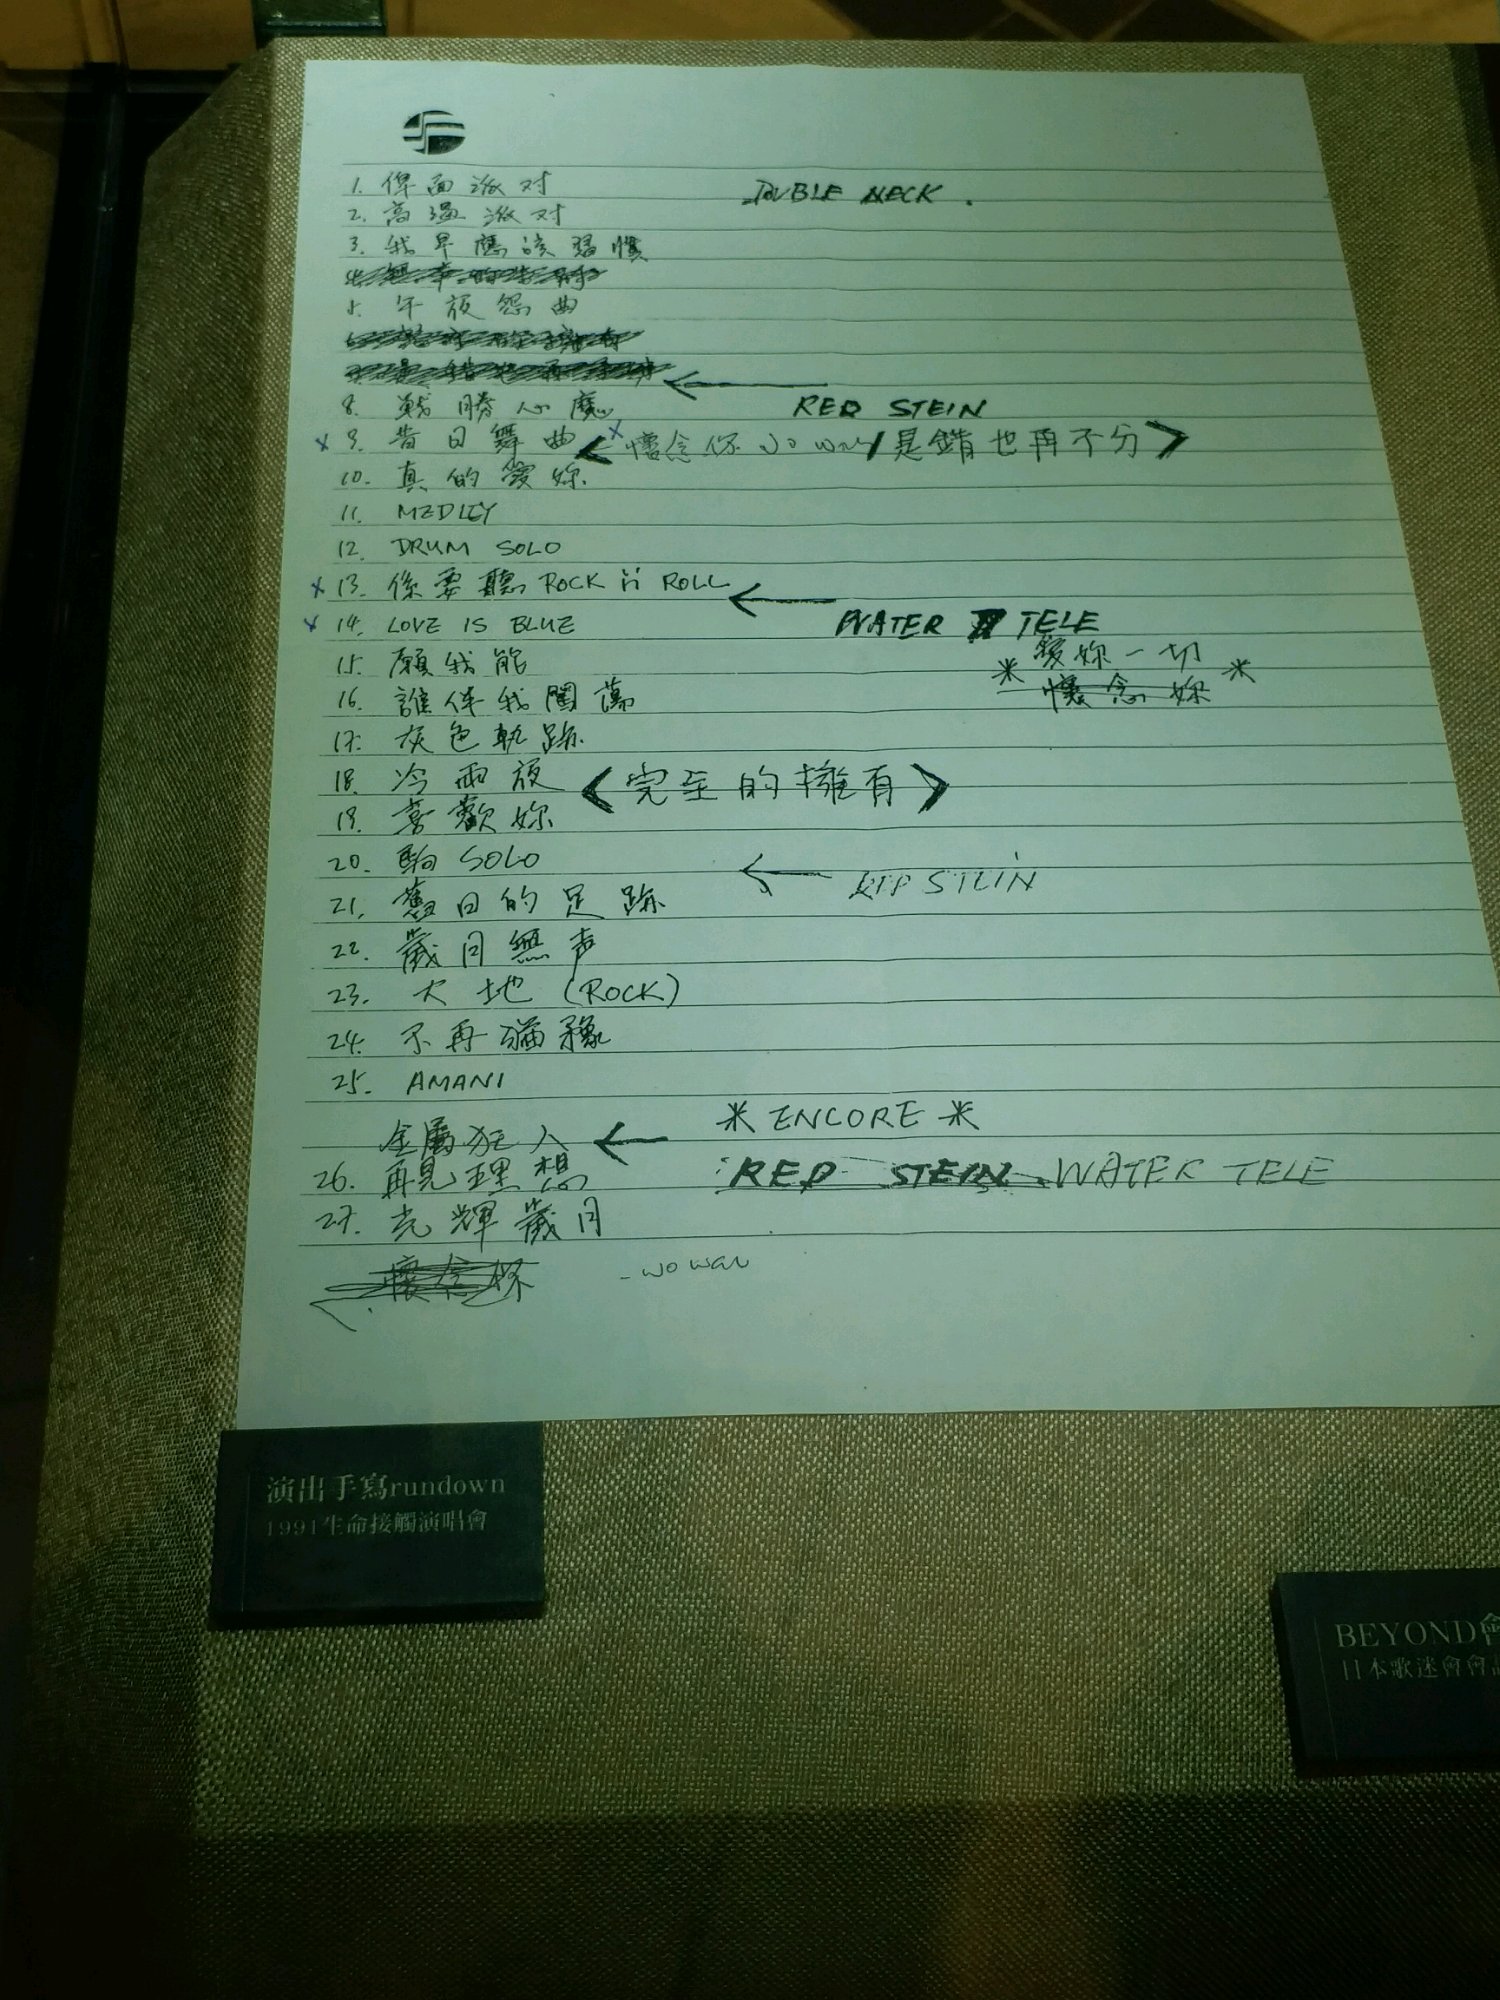 1. 俾面派对 DOUBLE NECK.
2. 高温派对
3. 我早應該習慣
5. 午夜怨曲
8. 戰勝心魔 ← RED STEIN
x 9. 昔日舞曲 < x 懷念你 wo wan / 是錯也再不分 >
10. 真的愛妳
11. MEDLEY
12. DRUM SOLO
x 13. 係要聽 ROCK n ROLL ←
x 14. LOVE IS BLUE WATER TELE
15. 願我能 * 愛妳一切 *
16. 誰伴我闖蕩 懷念妳
17. 灰色軌跡
18. 冷雨夜 < 完全的擁有 >
19. 喜歡妳
20. 駒 SOLO ← RED STEIN
21. 舊日的足跡
22. 歲月無声
23. 大地 (ROCK)
24. 不再猶豫
25. AMANI
* ENCORE *
金屬狂人 ←
26. 再見理想 RED STEIN WATER TELE
27. 光輝歲月
懷念妳 - wo wan
演出手寫rundown
1991生命接觸演唱會
BEYOND會
日本歌迷會會